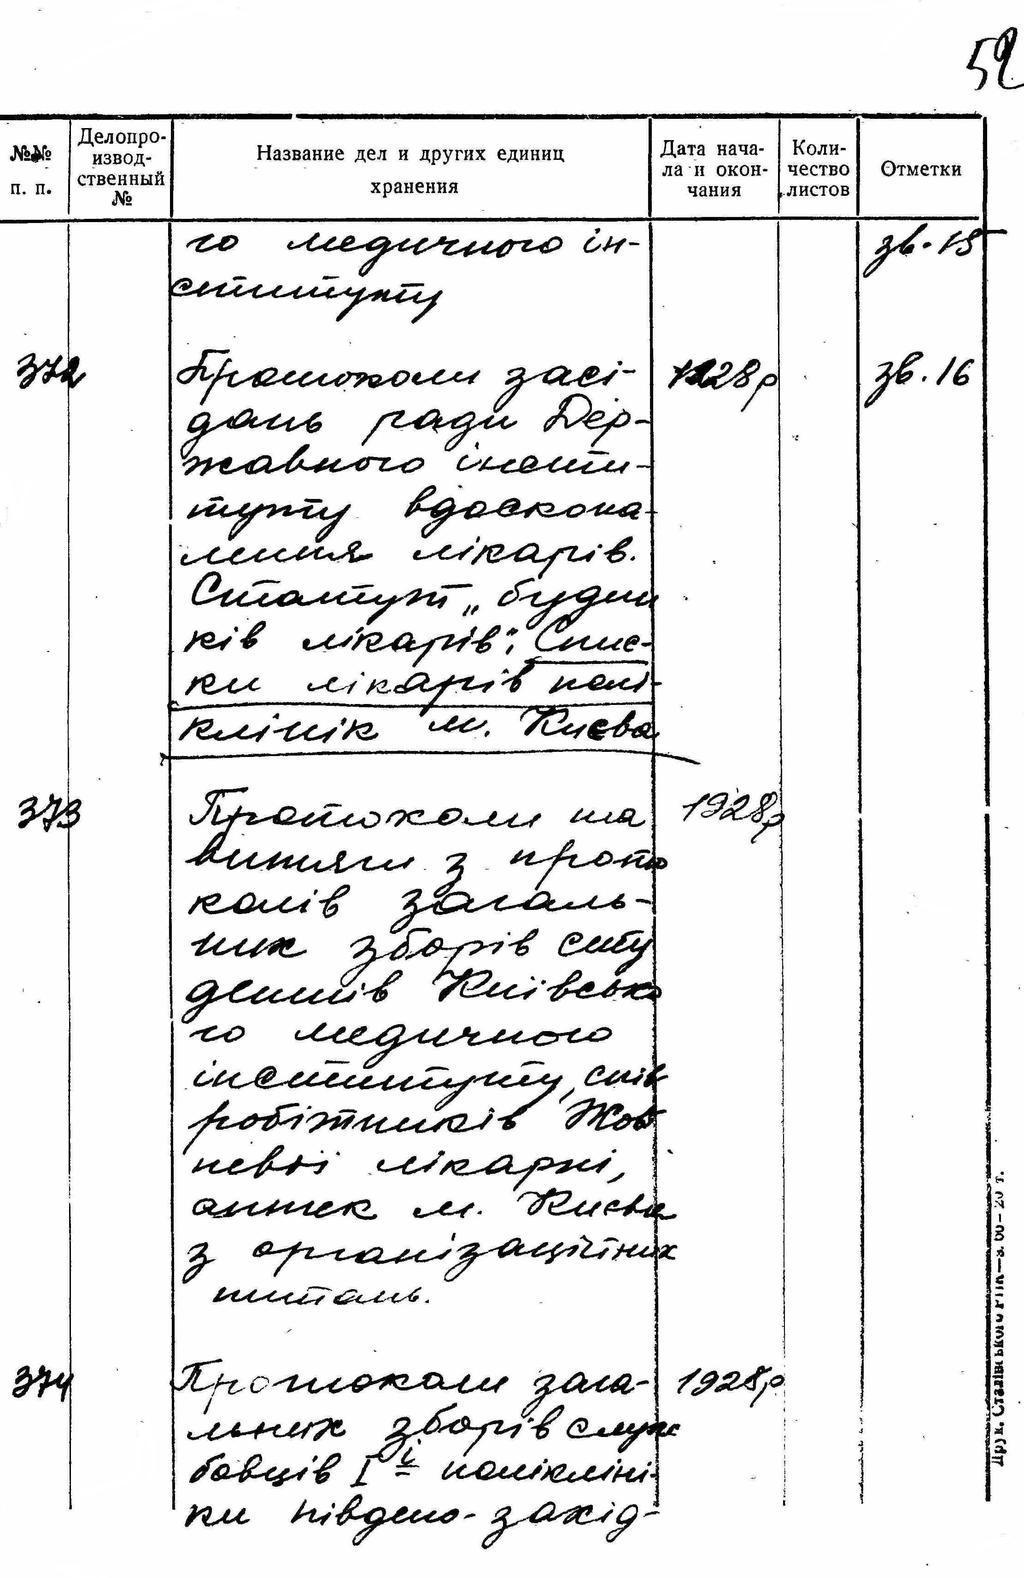 52
№№ п. п.
Делопро-
извод-
ственный
№
Название дел и других единиц
хранения
Дата нача-
ла и окон-
чания
Коли-
чество
листов
Отметки
го медичного ін- зв. 15
ституту
372 Протоколи засі- 1928р зв. 16
дань ради Дер-
жавного інсти-
туту вдоскона-
лення лікарів.
Статут „будин
ків лікарів"; Спис-
ки лікарів полі-
клінік м. Києва
373 Протоколи та 1928р
витяги з прото
колів загаль-
них зборів сту
дентів Київсько
го медичного
інституту, спів
робітників Жов
невої лікарні,
аптек м. Києва
з організаційних
питань.
374 Протоколи зага- 1928р
льних зборів служ
бовців Iї полікліні-
ки південо-захід-
Друк. Сталінського